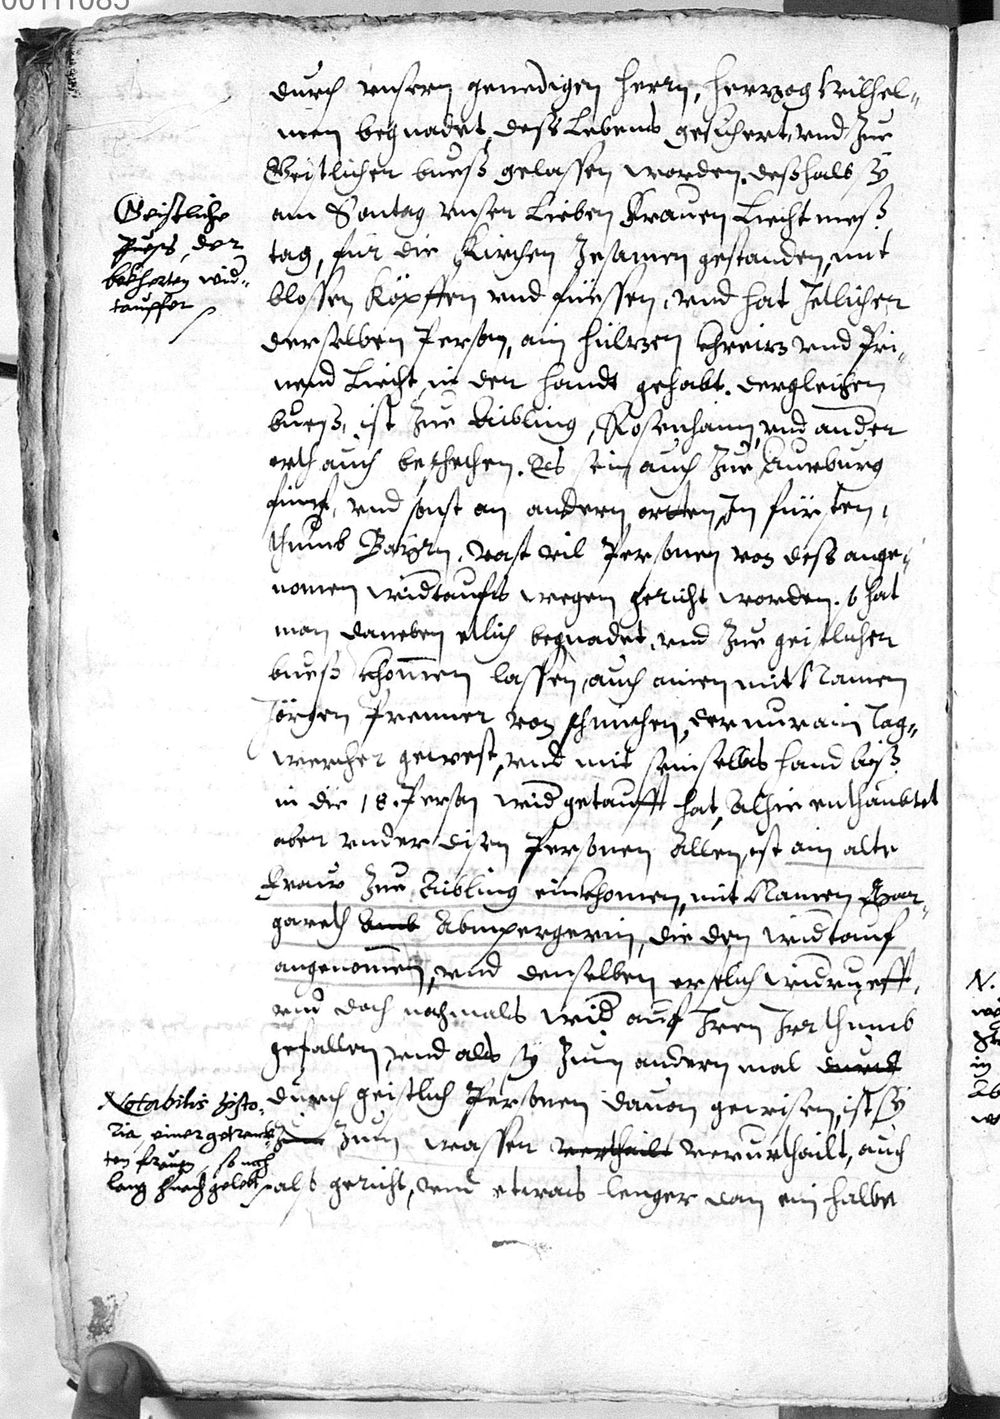 durch unsern genedigen herrn, hertzog Wilhel-
men begnadet, dess Lebens gesichert, und zue
Geistlicher bueß gelassen worden. deßhalb sy
am Sontag unser Lieben Frauen Liecht meß
tag, für die Kirchen zesamen gestanden, mit
blossen köpffen und füessen, und hat Jetlicher
derselben Person, ain hültzen khreitz und Pri-
nend Liecht in der handt gehabt. dergleichen
bueß, ist zue Aibling, Rosenhaim, und ander
orth auch beschehen. Es sein auch zue Aurburg
fünf, und sonst an andern orten, In fürsten-
thumb Bayrn, vast vil Personen von dess ange-
nomen widtaufs wegen gericht worden. hat
man daneben etlich begnadet, und zue geistlicher
bueß khommen lassen, auch ainen mit Namen
Jörgen Prenner von, der nur ain Tag-
wercher gewest, und mit sein selbs hand biß
in die 18. Person widgetaufft hat, Alhie enthaubtet
aber under disen Personen Allen, ist ain alte
Fraw zue Aibling einkhomen, mit Namen Mar-
gareth Abmpergerin, die den widtauf
angenommen, und denselben erstlich widruefft,
und doch nochmals wid auf Iren Irrthumb
gefallen, und als sy zum andern mal
durch geistlich Personen davon gewisen, ist sy
zum wasser verurthailt, auch
als gericht, und etwas lenger dan ein halbe
Geistliche
Pueß, der
bekherten wid-
tauffer
Notabilis histo-
ria, einer getrenck-
ten frauen, so noch
lang hernach gelebt
00111085
N.
in